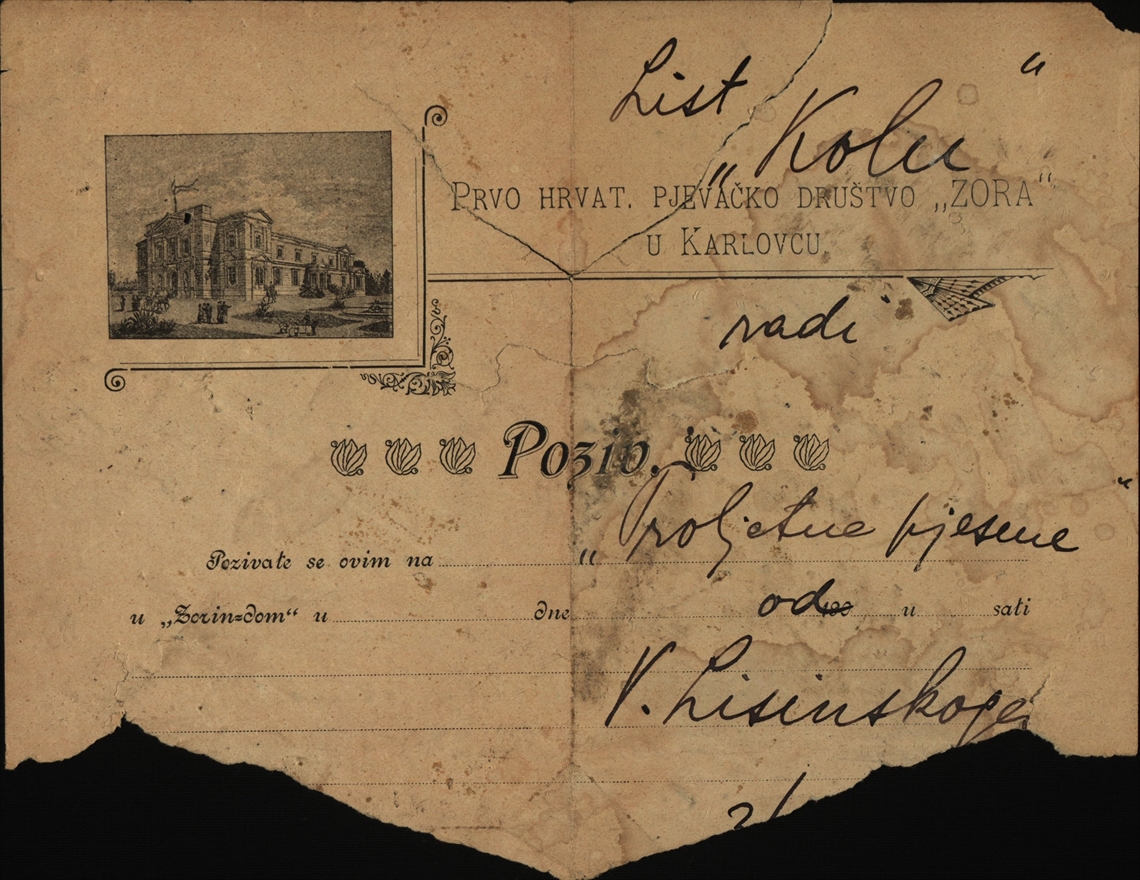 List
„Kolu“
PRVO HRVAT. PJEVAČKO DRUŠTVO „ZORA“
U KARLOVCU
radi
Poziv.
„Proljetne pjesme“
Pozivate se ovim na
u „Zorin=dom“ u dne od 190 u sati
V. Lisinskoga